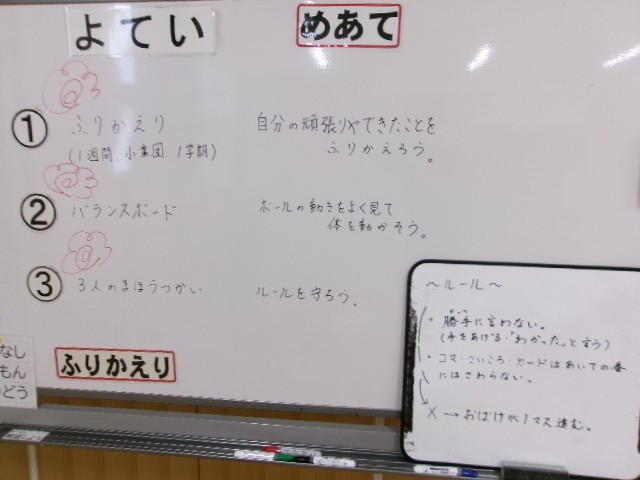 よてい
めあて
① ふりかえり
(1週間、小集団、1学期)
自分の頑張りやできたことを
ふりかえろう。
② バランスボード
ボールの動きをよく見て
体を動かそう。
③ 3人のまほうつかい
ルールを守ろう。
ふりかえり
なし
もん
どう
～ルール～
・勝手に言わない。
(手をあげる・「わかった」と言う)
・コマ・さいころ・カードはあいての番
にはさわらない。
X → おばけが1マス進む。